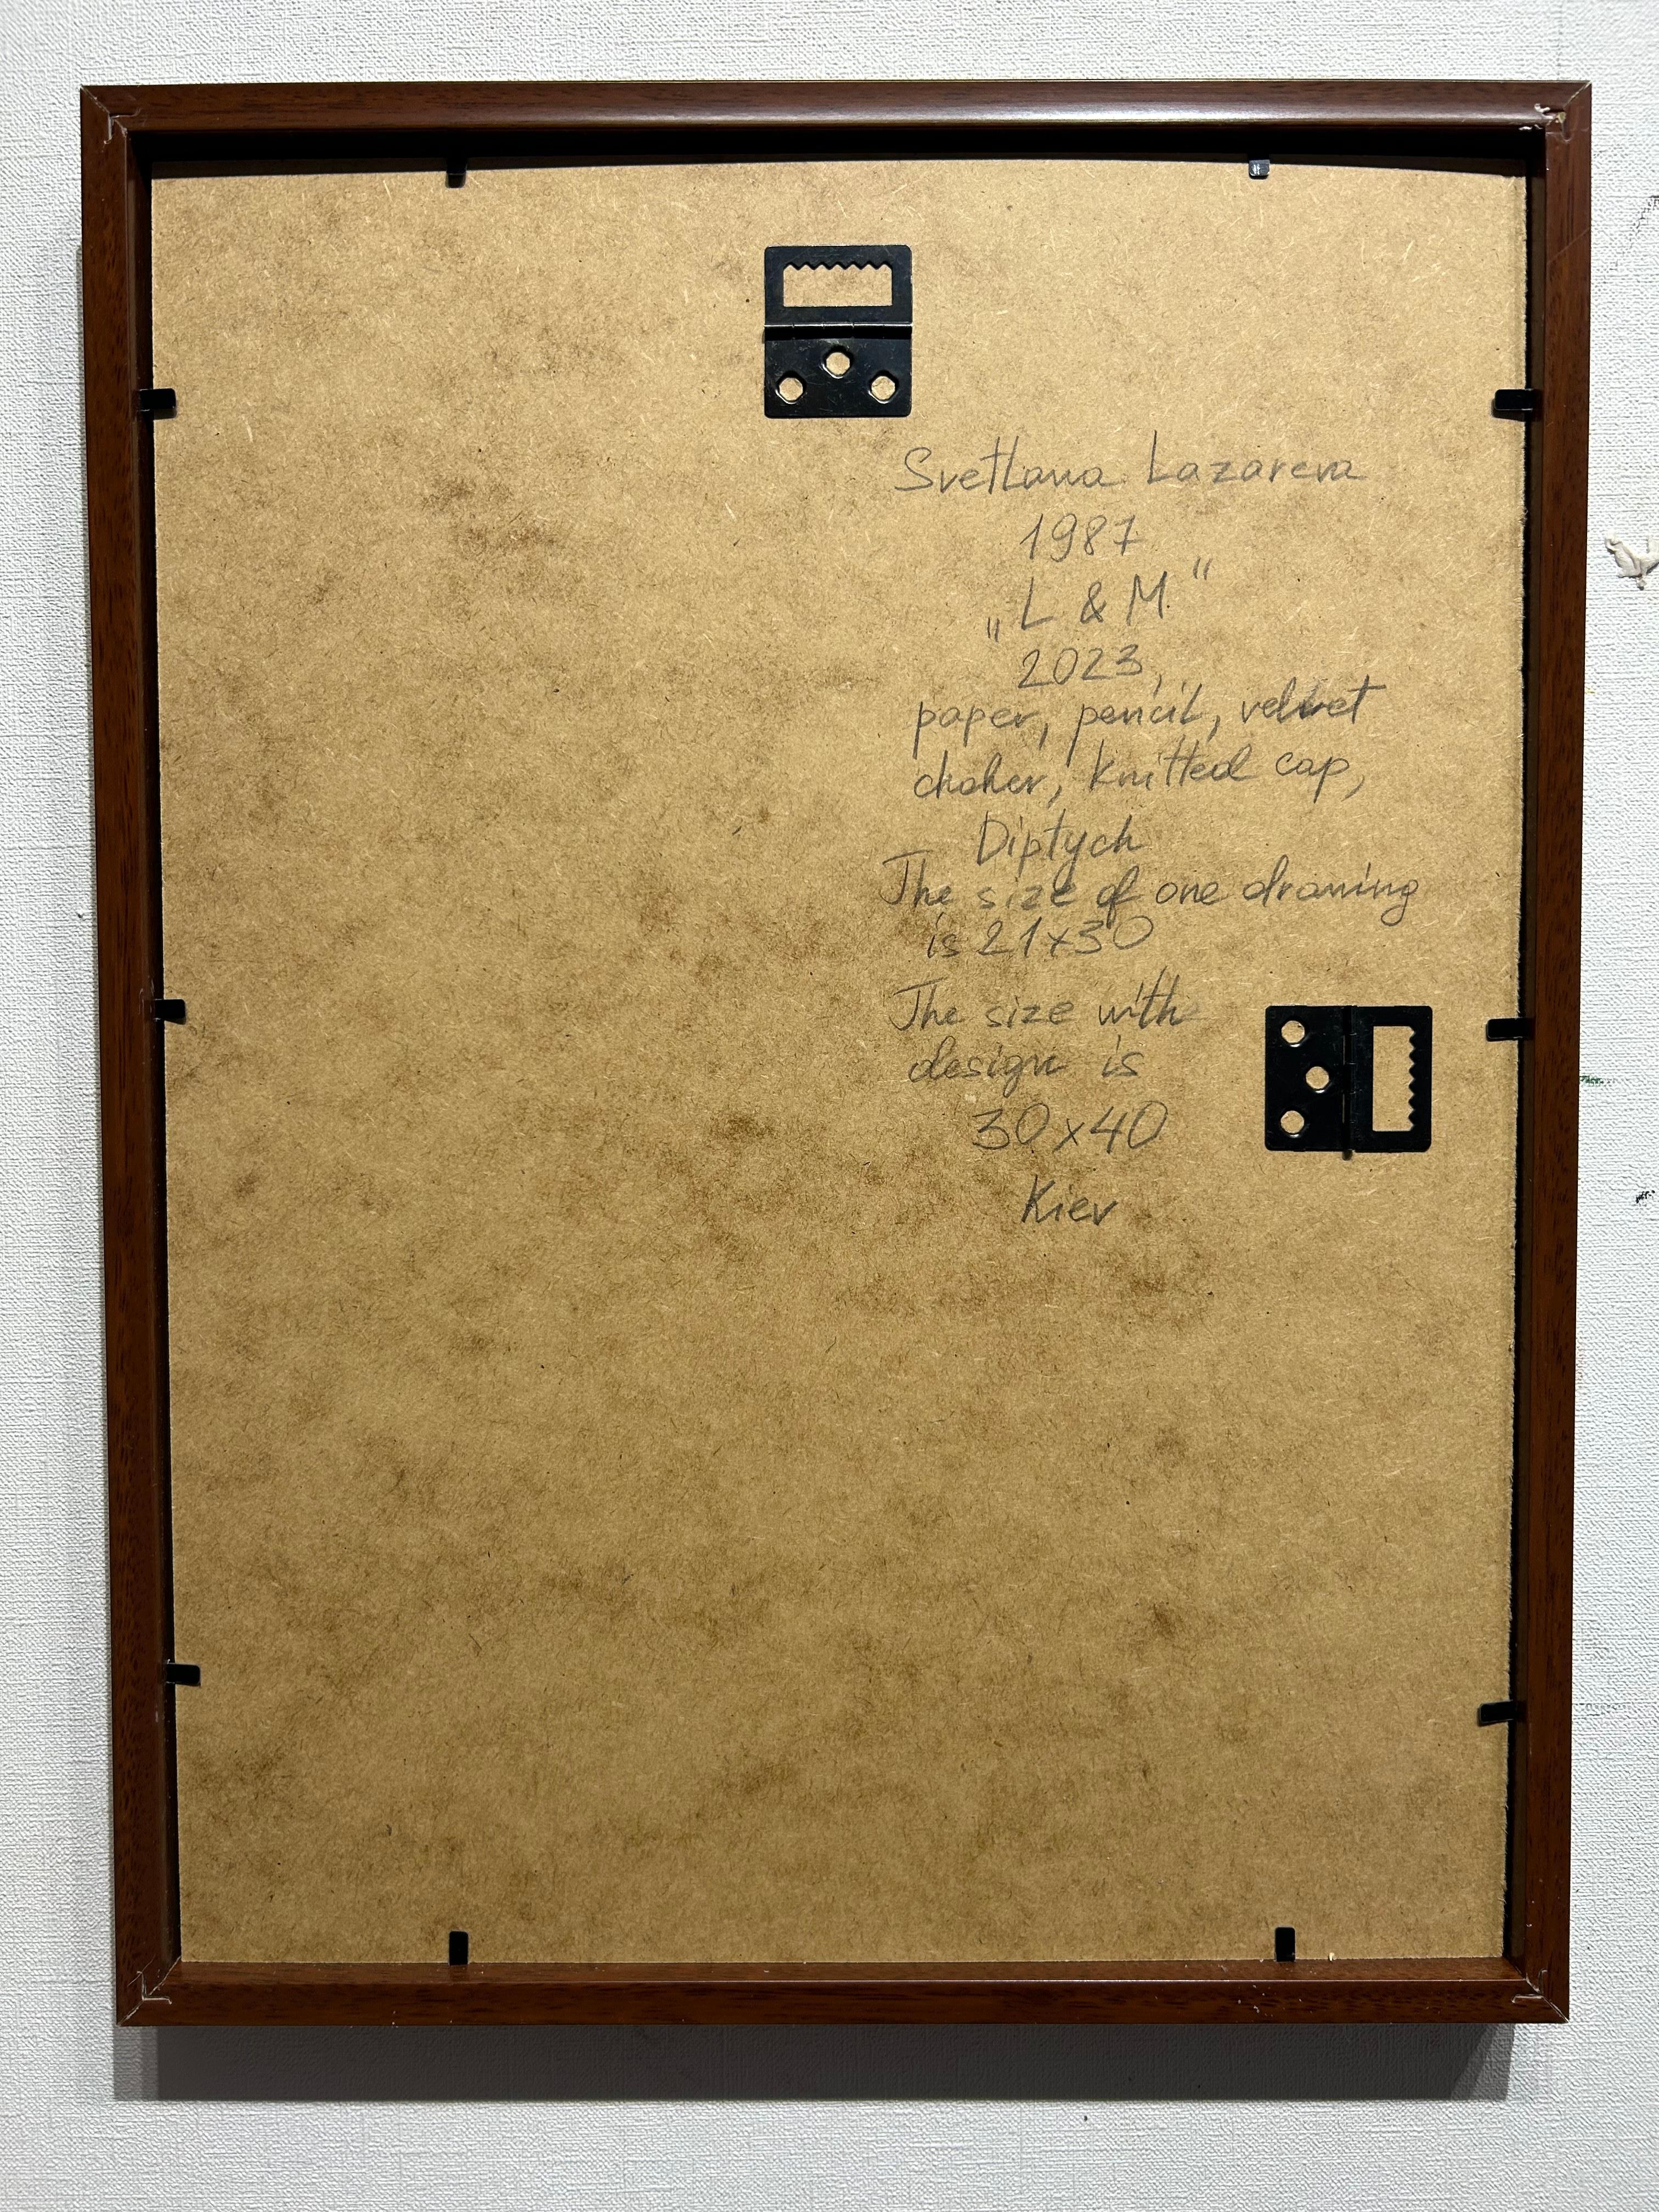 Svetlana Lazareva
1987
„L & M"
2023,
paper, pencil, velvet
choker, knitted cap,
Diptych
The size of one drawing
is 21x30
The size with
design is
30x40
Kiev